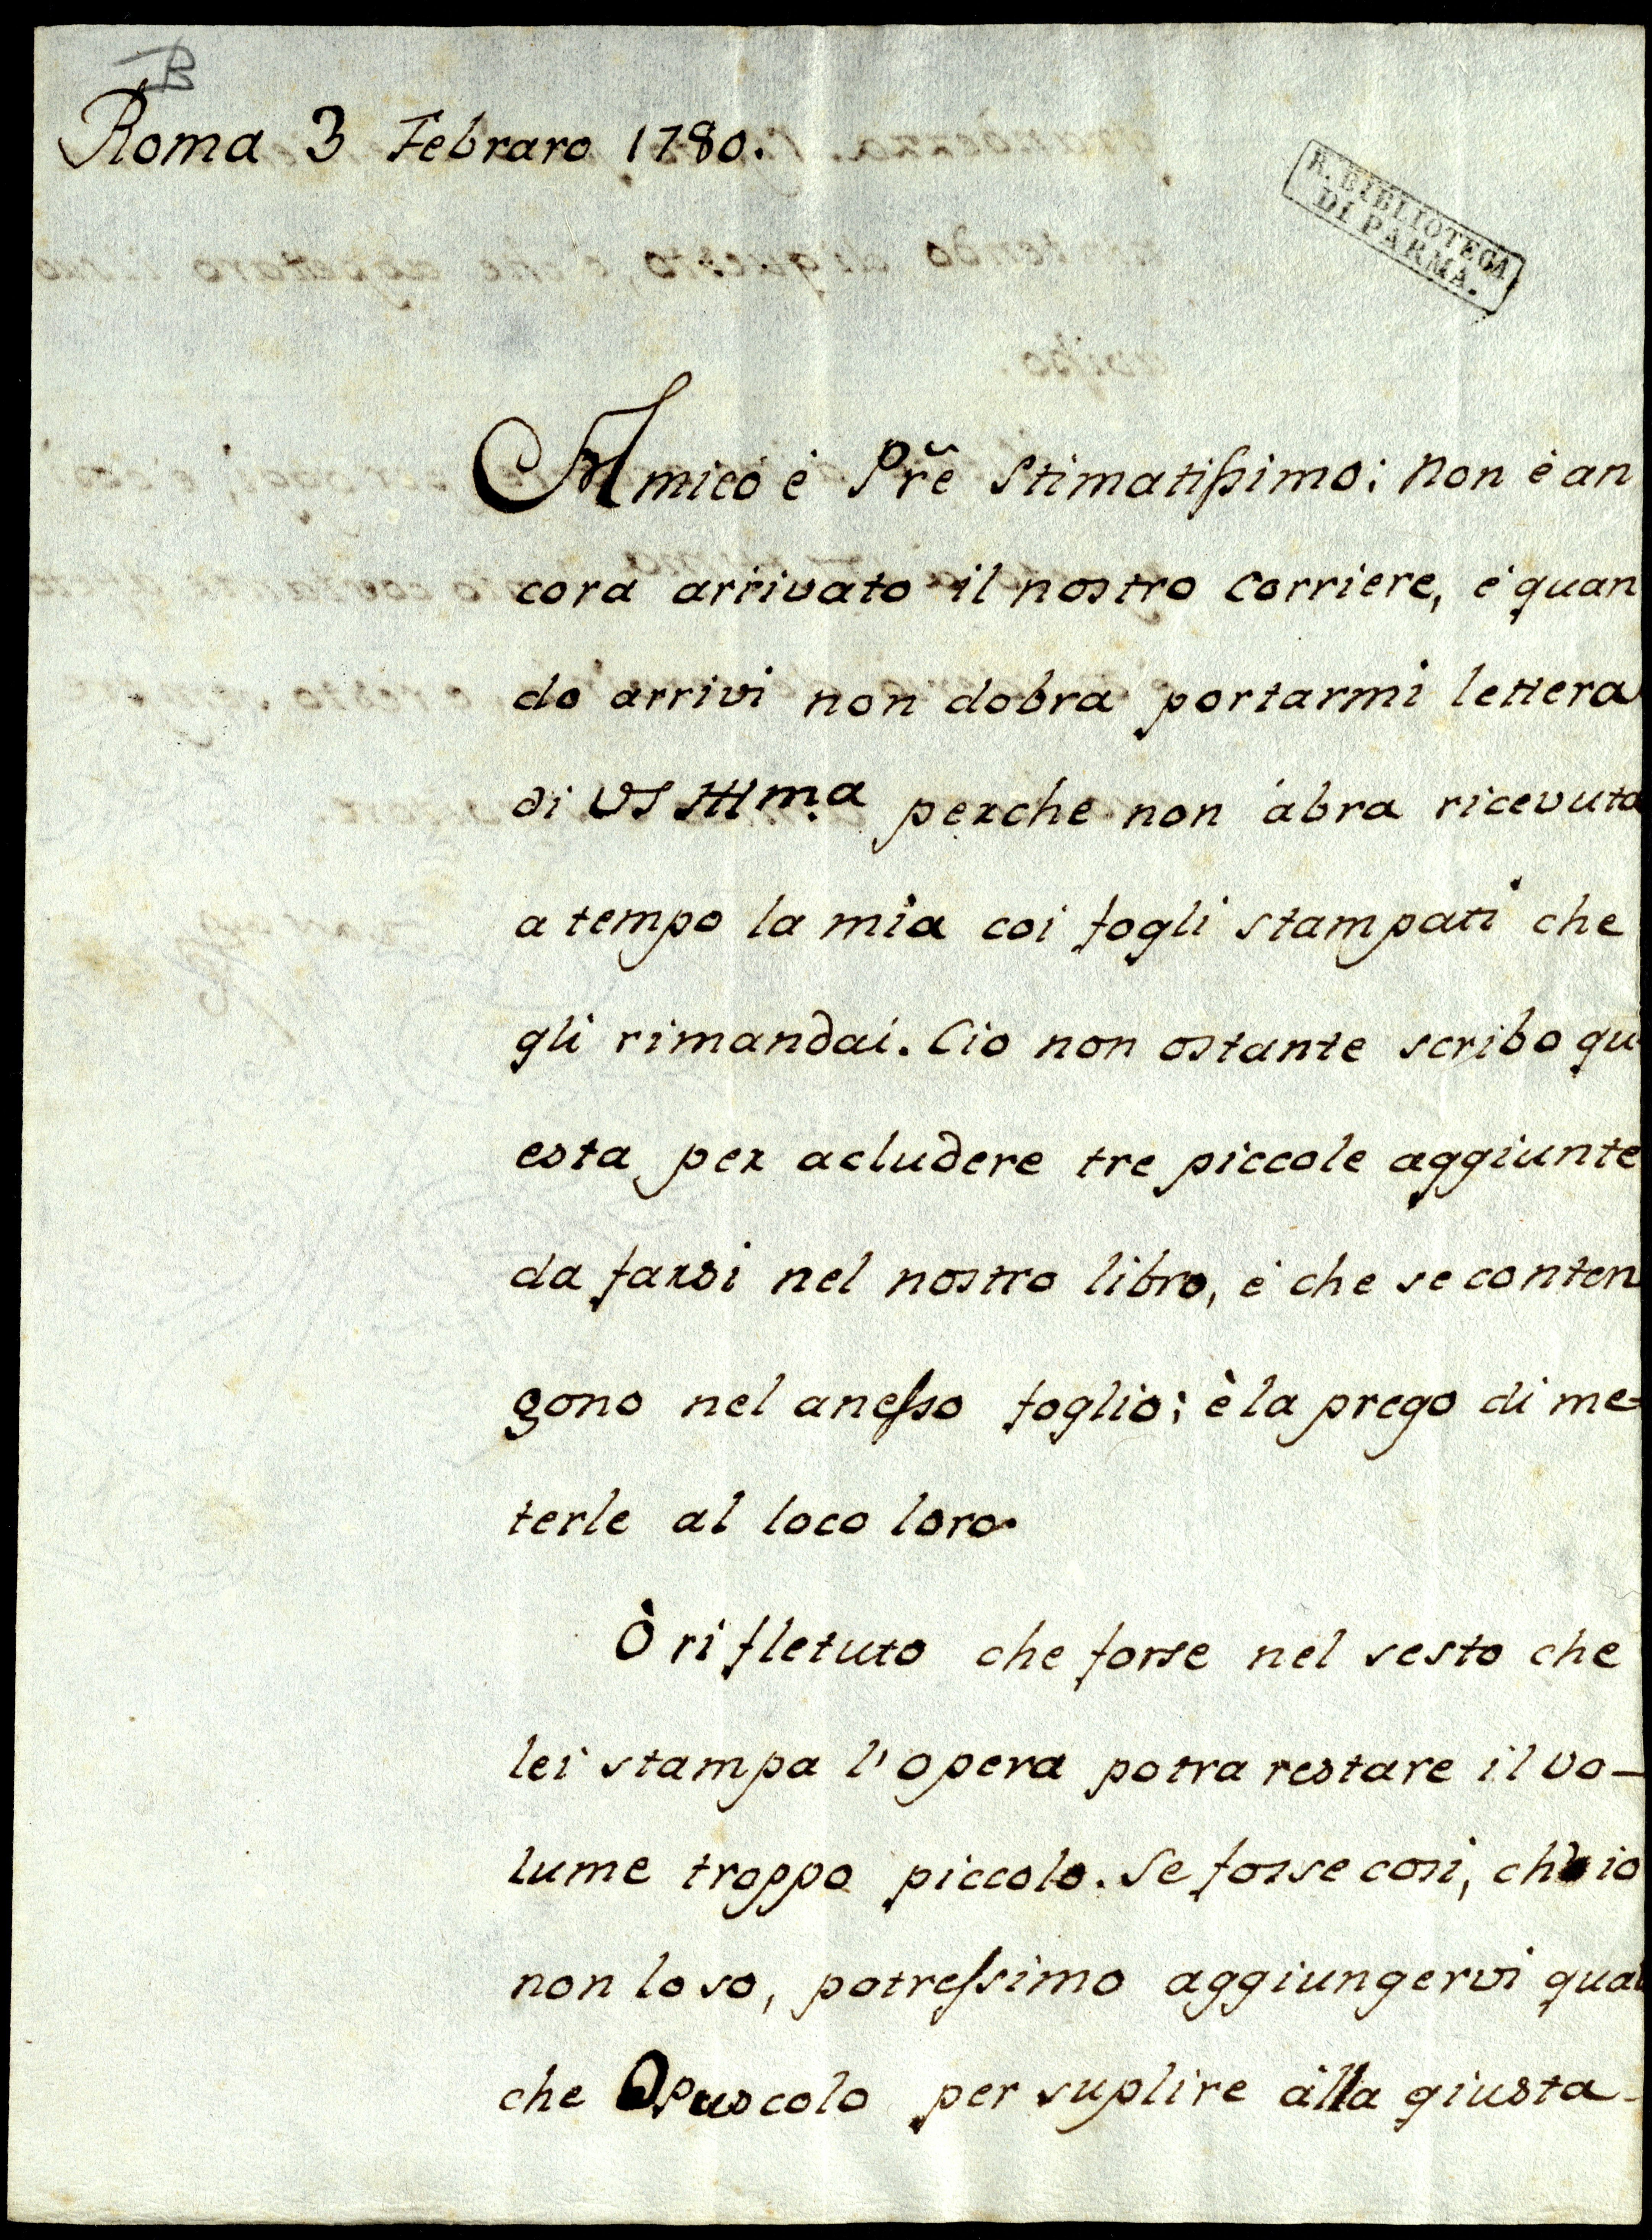 B
Roma 3 Febraro 1780.
R. BIBLIOTECA
DI PARMA.
Amico è Pr̃e Stimatissimo: Non è an
cora arrivato il nostro Corriere, è quan
do arrivi non dobra portarmi lettera
di VS Illma perche non abra ricevuta
a tempo la mia coi fogli stampati che
gli rimandai. Cio non ostante scribo qu
esta per acludere tre piccole aggiunte
da farsi nel nostro libro, è che se conten
gono nel anesso foglio; è la prego di me=
terle al loco loro.
Ò rifletuto che forse nel sesto che
lei stampa l'opera potra restare il vo-
lume troppo piccolo. Se fosse cosi, ch'io
non lo so, potressimo aggiungervi qual
che Opuscolo per suplire alla giusta